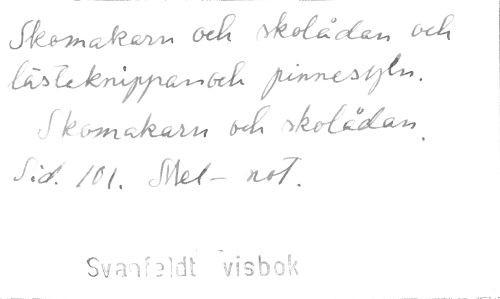 Skomakarn och skolådan och
lästeknippan och pinnesyln.
Skomakarn och skolådan.
Sid. 101. Mel- not.
Svanfeldt visbok